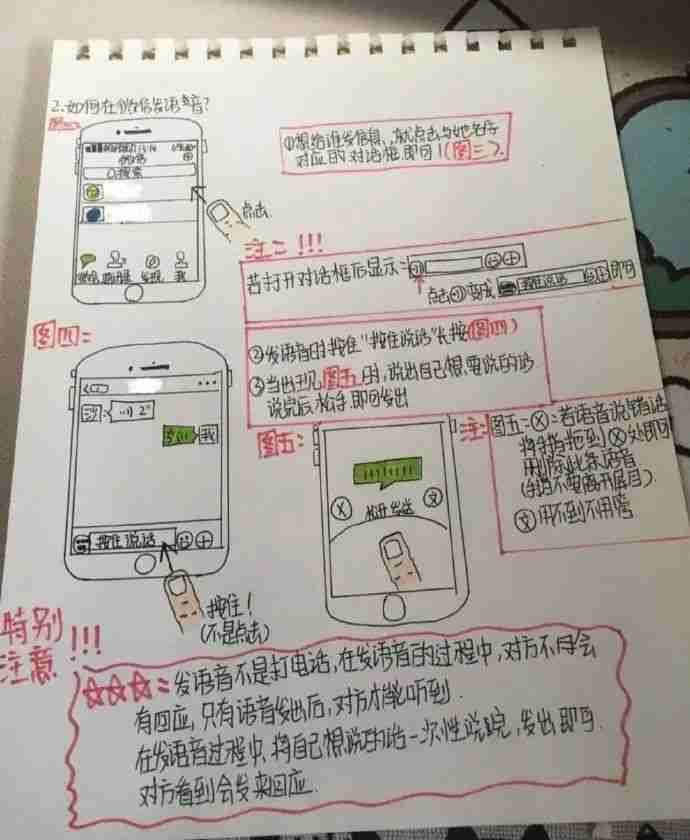 2.如何在微信发语音?
图三:
①想给谁发信息,就点击与她名字
对应的对话框即可!(图三).
搜索
点击
微信 通讯录 发现 我
注二!!!
若打开对话框后显示:
点击 变成 按住说话 即可
图四:
②发语音时按住"按住说话"长按(图四)
③当出现图五时,说出自己想要说的话
说完后松手即可发出
2"
我
按住说话
按住!
(不是点击)
图五:
松开发送
文
注:图五:ⓧ:若语音说错话
将手指拖到ⓧ处即可
删除此条语音
(手指不要离开屏幕).
文 用不到不用管
特别
注意!!!
☆☆☆:发语音不是打电话,在发语音的过程中,对方不会
有回应,只有语音发出后,对方才能听到.
在发语音过程中,将自己想说的话一次性说完,发出即可.
对方看到会发来回应.